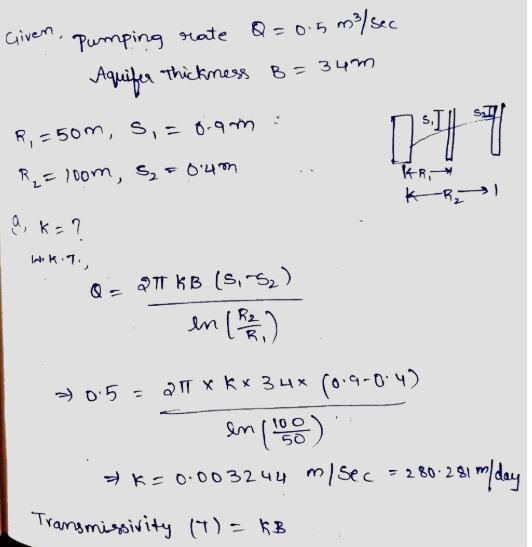 Given, Pumping rate Q = 0.5 m³/sec
Aquifer Thickness B = 34m
R₁ = 50m, S₁ = 0.9m
R₂ = 100m, S₂ = 0.4m
S₁ S₂
R₁
R₂
a, K = ?
W.K.T.,
Q = 2π KB (S₁-S₂) / ln (R₂/R₁)
⇒ 0.5 = 2π × K × 34 × (0.9-0.4) / ln (100/50)
⇒ K = 0.003244 m/sec = 280.281 m/day
Transmissivity (T) = KB